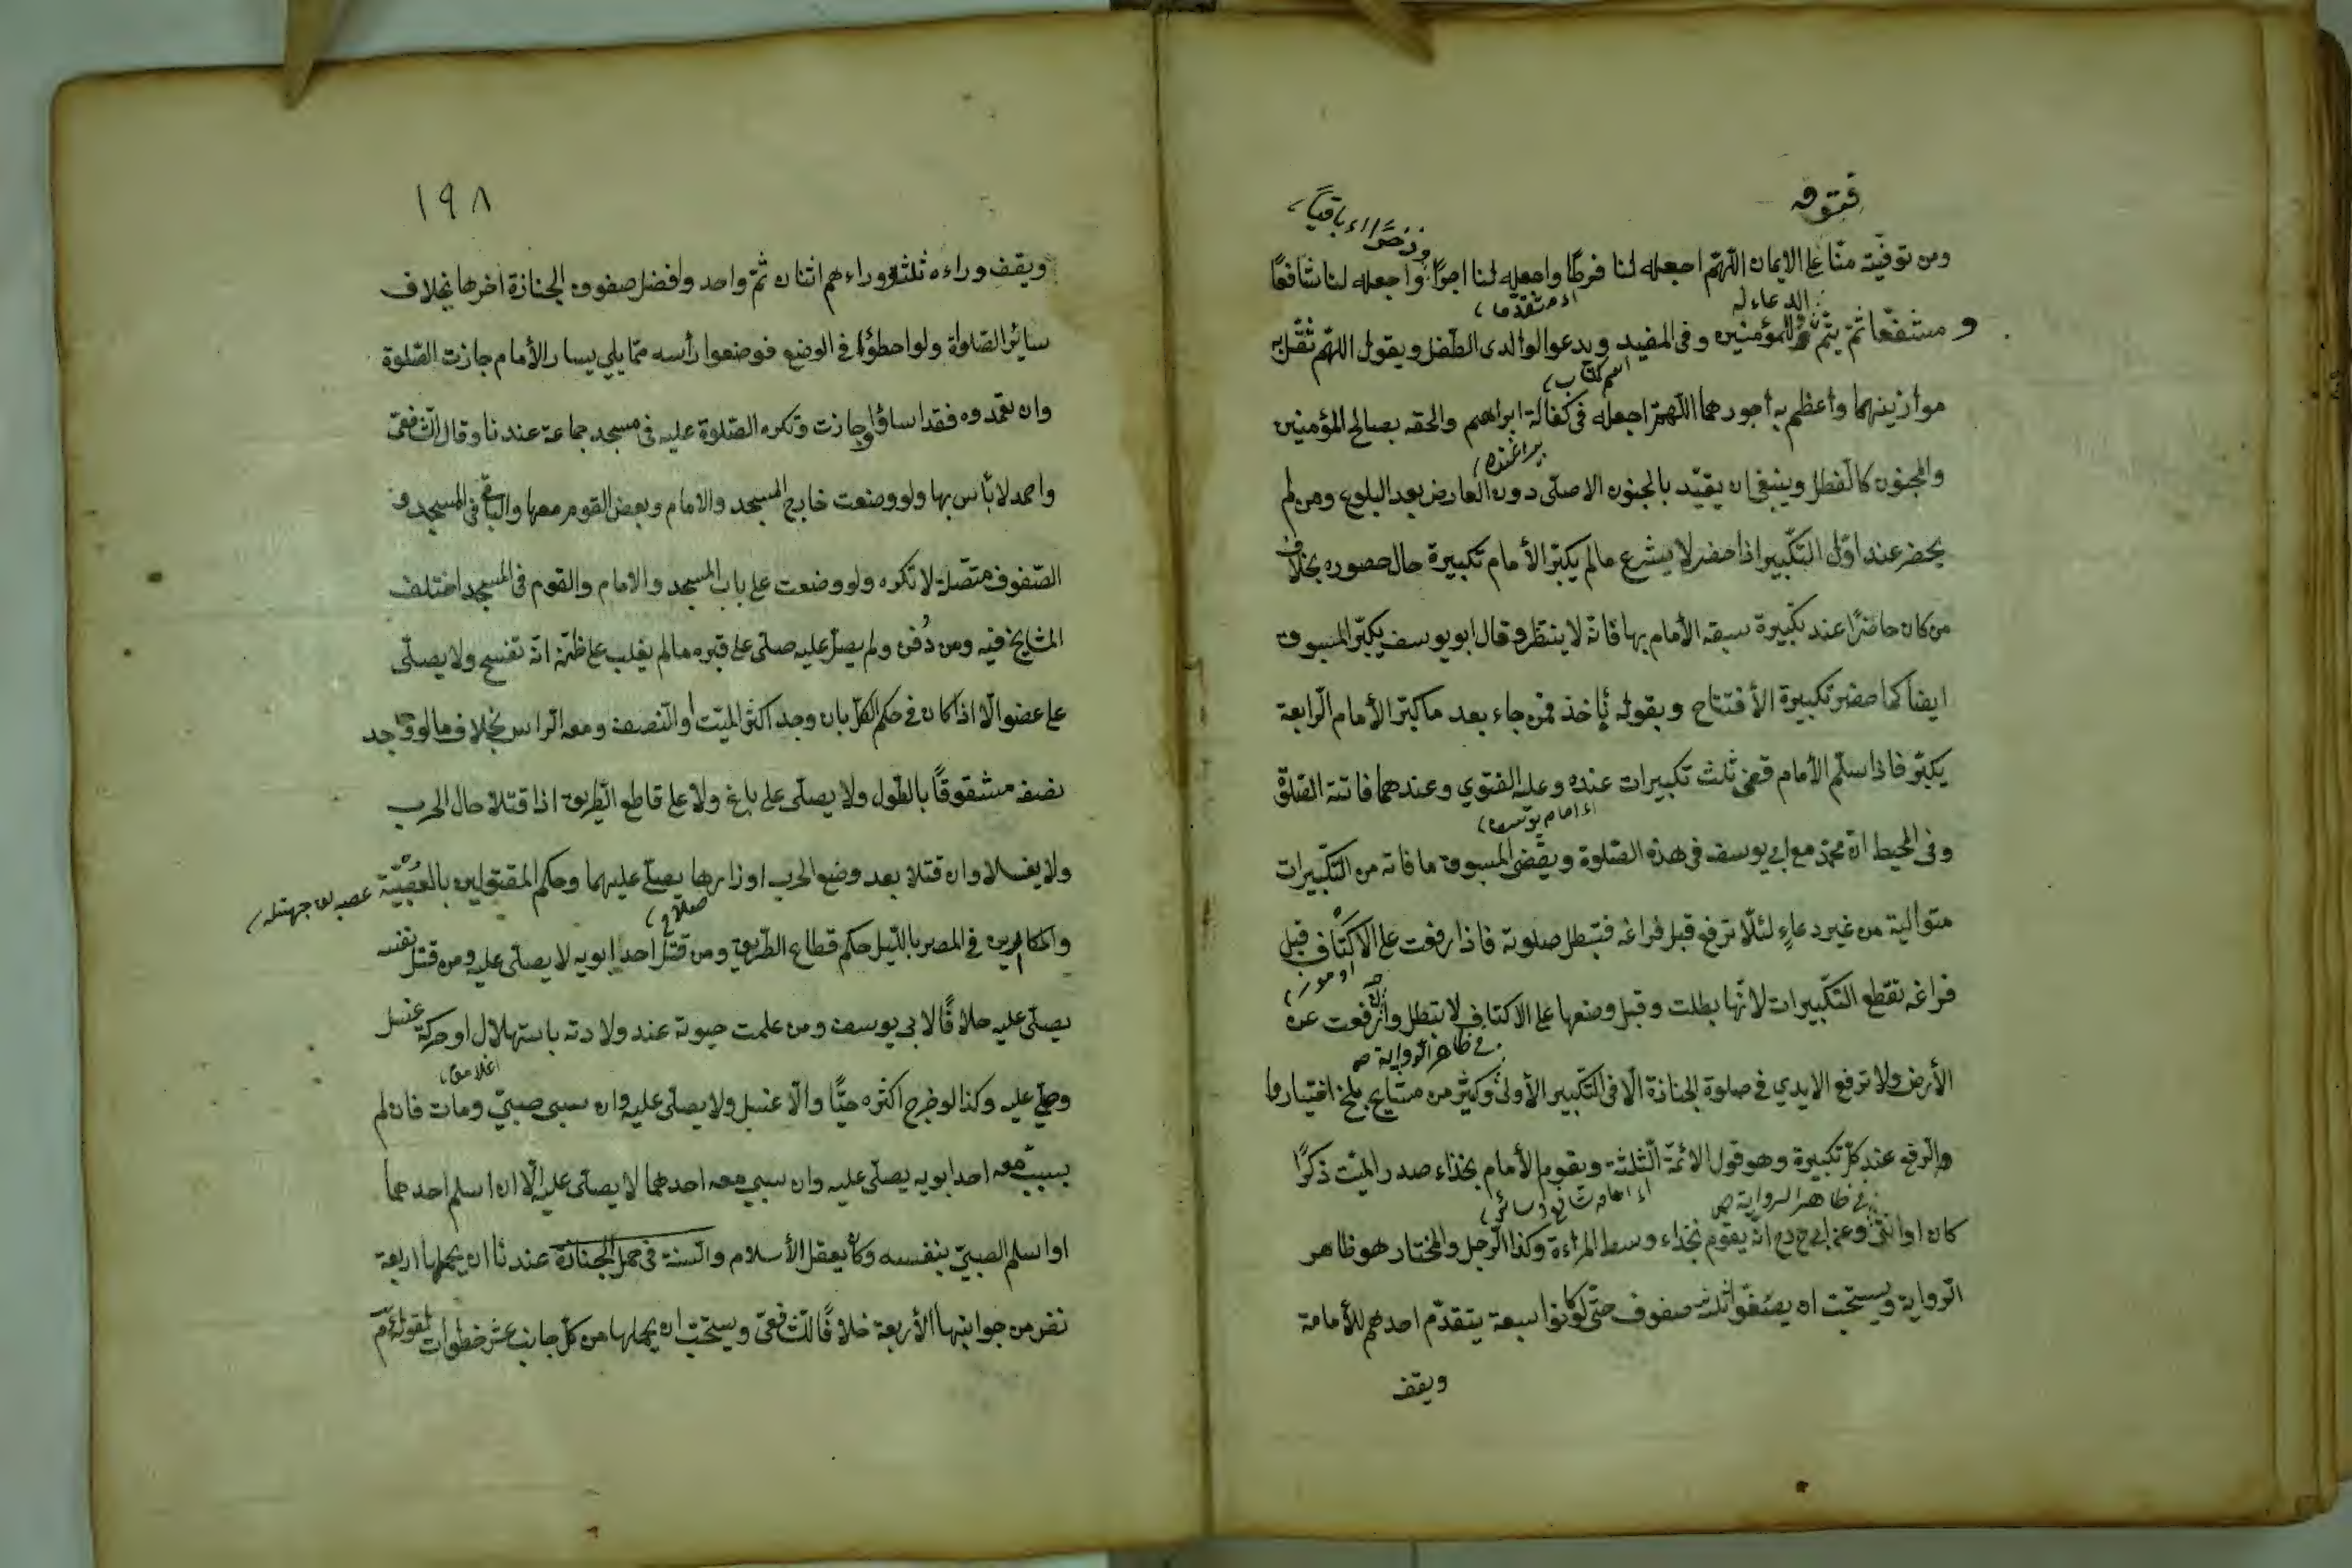 فتوفه
وذخرًا اى باقيًا
ومن توفّيته منّا على الايمان اللّهمّ اجعله لنا فرطًا واجعله لنا اجرًا واجعله لنا شافعًا
الدعاء له
اى متقدّما
و مشفّعا ثمّ يتمّ للمؤمنين وفى المفيد ويدعوا لوالدى الطّفل ويقول اللّهمّ ثقّل به
اسم كتاب
موازينهما وأعظم به أجورهما اللّهمّ اجعله فى كفالة ابراهيم والحقه بصالح المؤمنين
والمجنون كالطفل وينبغى ان يقيّد بالجنون الاصلّى دون العارض بعد البلوغ ومن لم
يحضر عند اوّل التكبير اذا حضر لا يشرع مالم يكبّر الأمام تكبيرة حال حضوره بخلاف
من كان حاضرًا عند تكبيرة سبقه الأمام بها فانّه لا ينتظر وقال ابو يوسف يكبّر المسبوق
ايضا كما حضر تكبيرة الأفتتاح وبقوله يأخذ فمن جاء بعد ما كبّر الأمام الرّابعة
يكبّر فاذا سلّم الأمام قضى ثلث تكبيرات عنده وعليه الفتوى وعندهما فاتته الصّلوة
وفى المحيط انّ محمّد مع ابى يوسف فى هذه الصّلوة ويقضى المسبوق ما فاته من التكبيرات
متوالية من غير دعاءٍ لئلّا ترفع قبل فراغه فتبطل صلوته فاذا رفعت على الاكتاف قبل
فراغه تقطع التكبيرات لانّها بطلت وقبل وضعها على الاكتاف لا تبطل وان رفعت عن
فى ظاهر الرواية
الأرض ولا ترفع الايدي فى صلوة الجنازة الّا فى التكبير الأولى وكثير من مشايخ بلخ اختياروا
والرّفع عند كلّ تكبيرة وهو قول الائمّة الثّلثة ويقوم الأمام بحذاء صدر الميّت ذكرًا
فى ظاهر الرواية
كان او انثى وعن ابى ح رح انّه يقوم بحذاء وسط المراءة وكذا الرّجل والمختار هو ظاهر
الرّواية ويستحبّ ان يصفّوا ثلث صفوف حتّى لو كانوا سبعة يتقدّم احدهم للأمامة
ويقف
١٩٨
ويقف وراءه ثلثة ووراءهم اثنان ثمّ واحد وافضل صفوف الجنازة اخرها بخلاف
سائر الصّلواة ولو اخطؤا فى الوضع فوضعوا رأسه ممّا يلي يسار الأمام جازت الصّلوة
وان تعمّدوه فقد اساؤا وجازت وتكره الصّلوة عليه فى مسجد جماعة عندنا وقال الشافعىّ
واحمد لا بأس بها ولو وضعت خارج المسجد والامام وبعض القوم معها والباقى فى المسجد و
الصّفوف متّصلة لا تكره ولو وضعت على باب المسجد والامام والقوم فى المسجد اختلف
المشايخ فيه ومن دُفن ولم يصلّ عليه صلّى على قبره مالم يغلب على ظنّه انّه تفسّخ ولا يصلّى
على عضو الّا اذا كان فى حكم الكلّ بان وجد اكثر الميّت او النّصف ومعه الرّاس بخلاف ما لو وجد
نصفه مشقوقًا بالطّول ولا يصلّى على باغ ولا على قاطع الطّريق اذا قتلا حال الحرب
ولا يغسلا وان قتلا بعد وضع الحرب اوزارها يصلّى عليهما وحكم المقتولين بالعُصْبيّة
والمكابرين فى المصر بالليل حكم قطاع الطّريق ومن قتل احد ابويه لا يصلّى عليه ومن قتل نفسه
يصلّى عليه خلافًا لابى يوسف ومن علمت حيوته عند ولادته باستهلال او حركة غسل
وصلّى عليه وكذا لو خرج اكثره حيًّا والّا غسل ولا يصلّى عليه وان سبى صبىّ ومات فان لم
يسب معه احد ابويه يصلّى عليه وان سبى معه احدهما لا يصلّى عليه الّا ان اسلم احدهما
او اسلم الصبىّ بنفسه وكان يعقل الأسلام والسّنة فى حمل الجنازة عندنا ان يحملها اربعة
نفر من جوانبها الأربعة خلافًا للشافعىّ ويستحبّ ان يحملها من كلّ جانب عشر خطوات لقوله عم